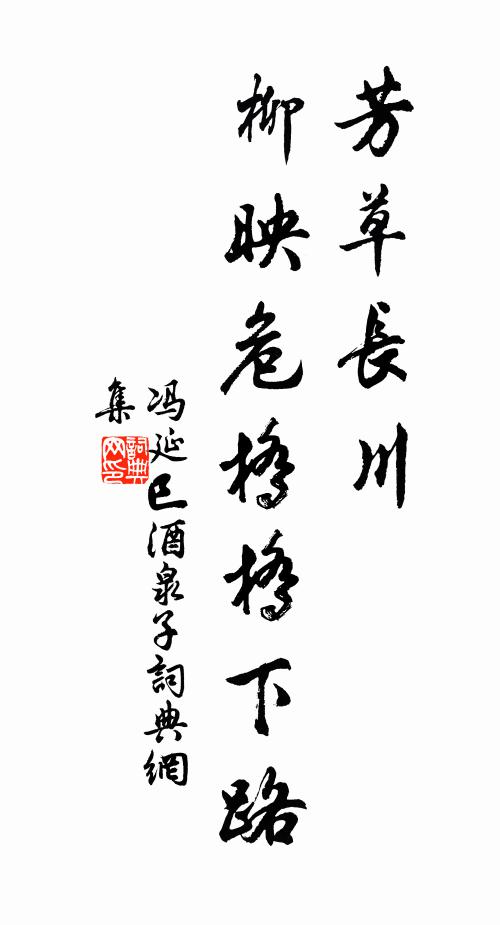 芳草長川
柳映危橋橋下路
冯延巳酒泉子詞典網
集
詞典
网印